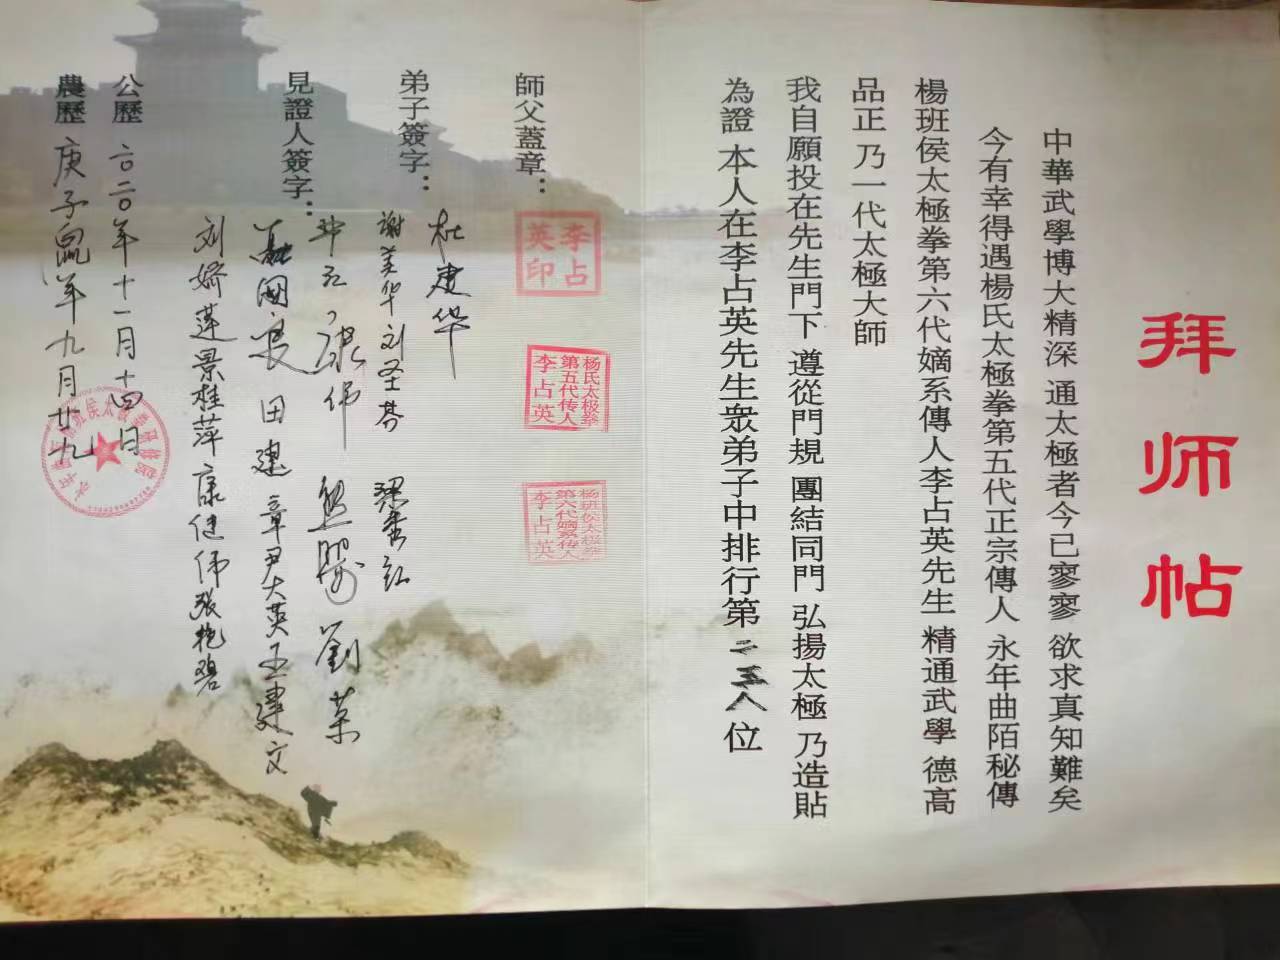 拜师帖
中華武學博大精深 通太極者今已寥寥 欲求真知難矣
今有幸得遇楊氏太極拳第五代正宗傳人 永年曲陌秘傳
楊班侯太極拳第六代嫡系傳人李占英先生 精通武學 德高
品正 乃一代太極大師
我自願投在先生門下 遵從門規 團結同門 弘揚太極 乃造貼
為證 本人在李占英先生衆弟子中排行第二三八位
師父蓋章：
李占英印
杨氏太极拳
第五代传人
李占英
杨班侯太极拳
第六代嫡系传人
李占英
弟子簽字：
杜建华
谢美华 刘圣芬
見證人簽字：
康伟 熊 劉荣
国良 田建章 尹大英 王建文
刘娇莲 景桂萍 康健伟 张艳碧
公歷 二〇二〇年十一月十四日
農歷 庚子鼠年九月廿九